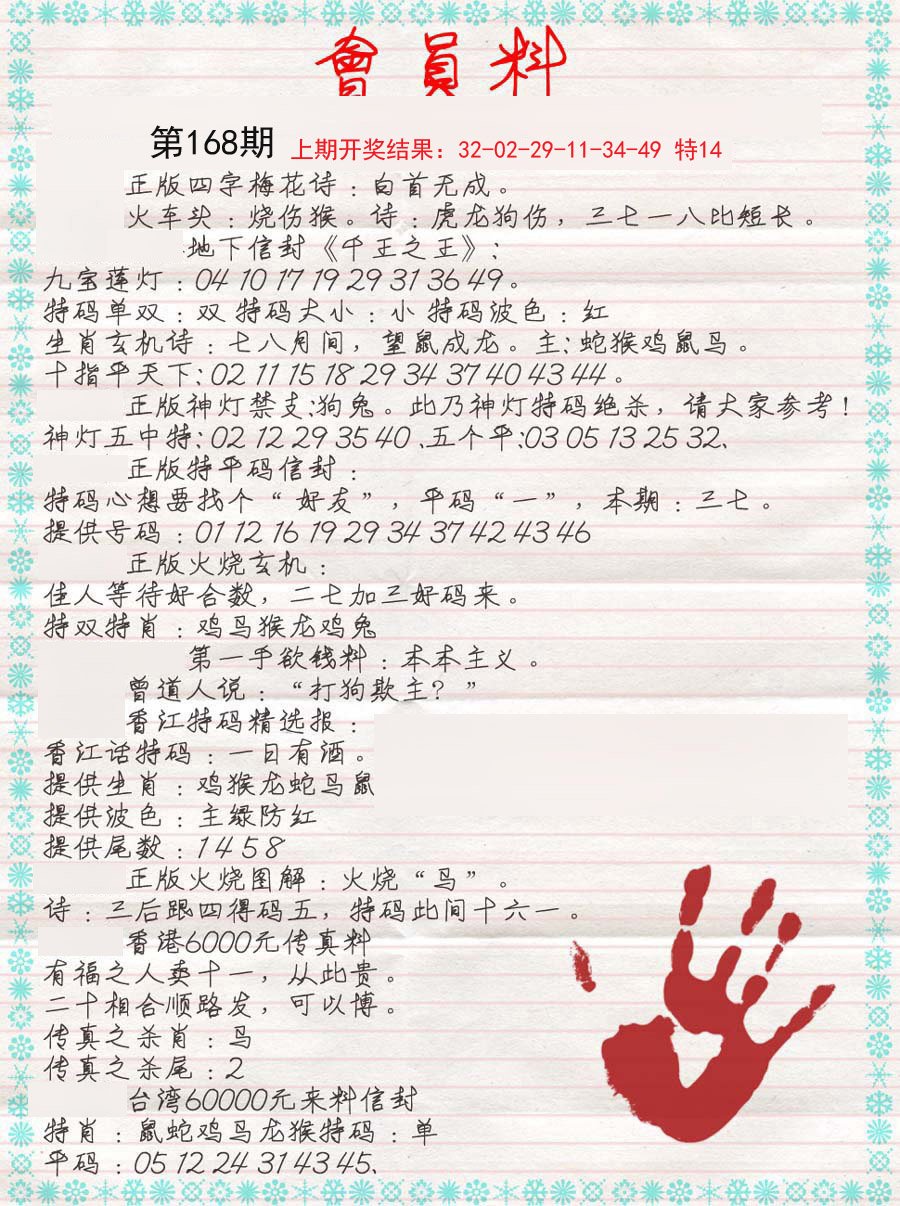 會員料
第168期 上期开奖结果：32-02-29-11-34-49 特14
正版四字梅花诗：白首无成。
火车头：烧伤猴。诗：虎龙狗伤，三七一八比短长。
地下信封《千王之王》：
九宝莲灯：04 10 17 19 29 31 36 49。
特码单双：双 特码大小：小 特码波色：红
生肖玄机诗：七八月间，望鼠成龙。主：蛇猴鸡鼠鸟。
十指平天下：02 11 15 18 29 34 37 40 43 44。
正版神灯禁支：狗兔。此乃神灯特码绝杀，请大家参考！
神灯五中特：02 12 29 35 40、五个平：03 05 13 25 32、
正版特平码信封：
特码心想要找个“好友”，平码“一”，本期：三七。
提供号码：01 12 16 19 29 34 37 42 43 46
正版火烧玄机：
佳人等待好合数，二七加三好码来。
特双特肖：鸡鸟猴龙鸡兔
第一手欲钱料：本本主义。
曾道人说：“打狗欺主？”
香江特码精选报：
香江话特码：一日有酒。
提供生肖：鸡猴龙蛇鸟鼠
提供波色：主绿防红
提供尾数：1 4 5 8
正版火烧图解：火烧“鸟”。
诗：三后跟四得码五，特码此间十六一。
香港6000元传真料
有福之人卖十一，从此贵。
二十相合顺路发，可以博。
传真之杀肖：鸟
传真之杀尾：2
台湾60000元来料信封
特肖：鼠蛇鸡鸟龙猴特码：单
平码：05 12 24 31 43 45、